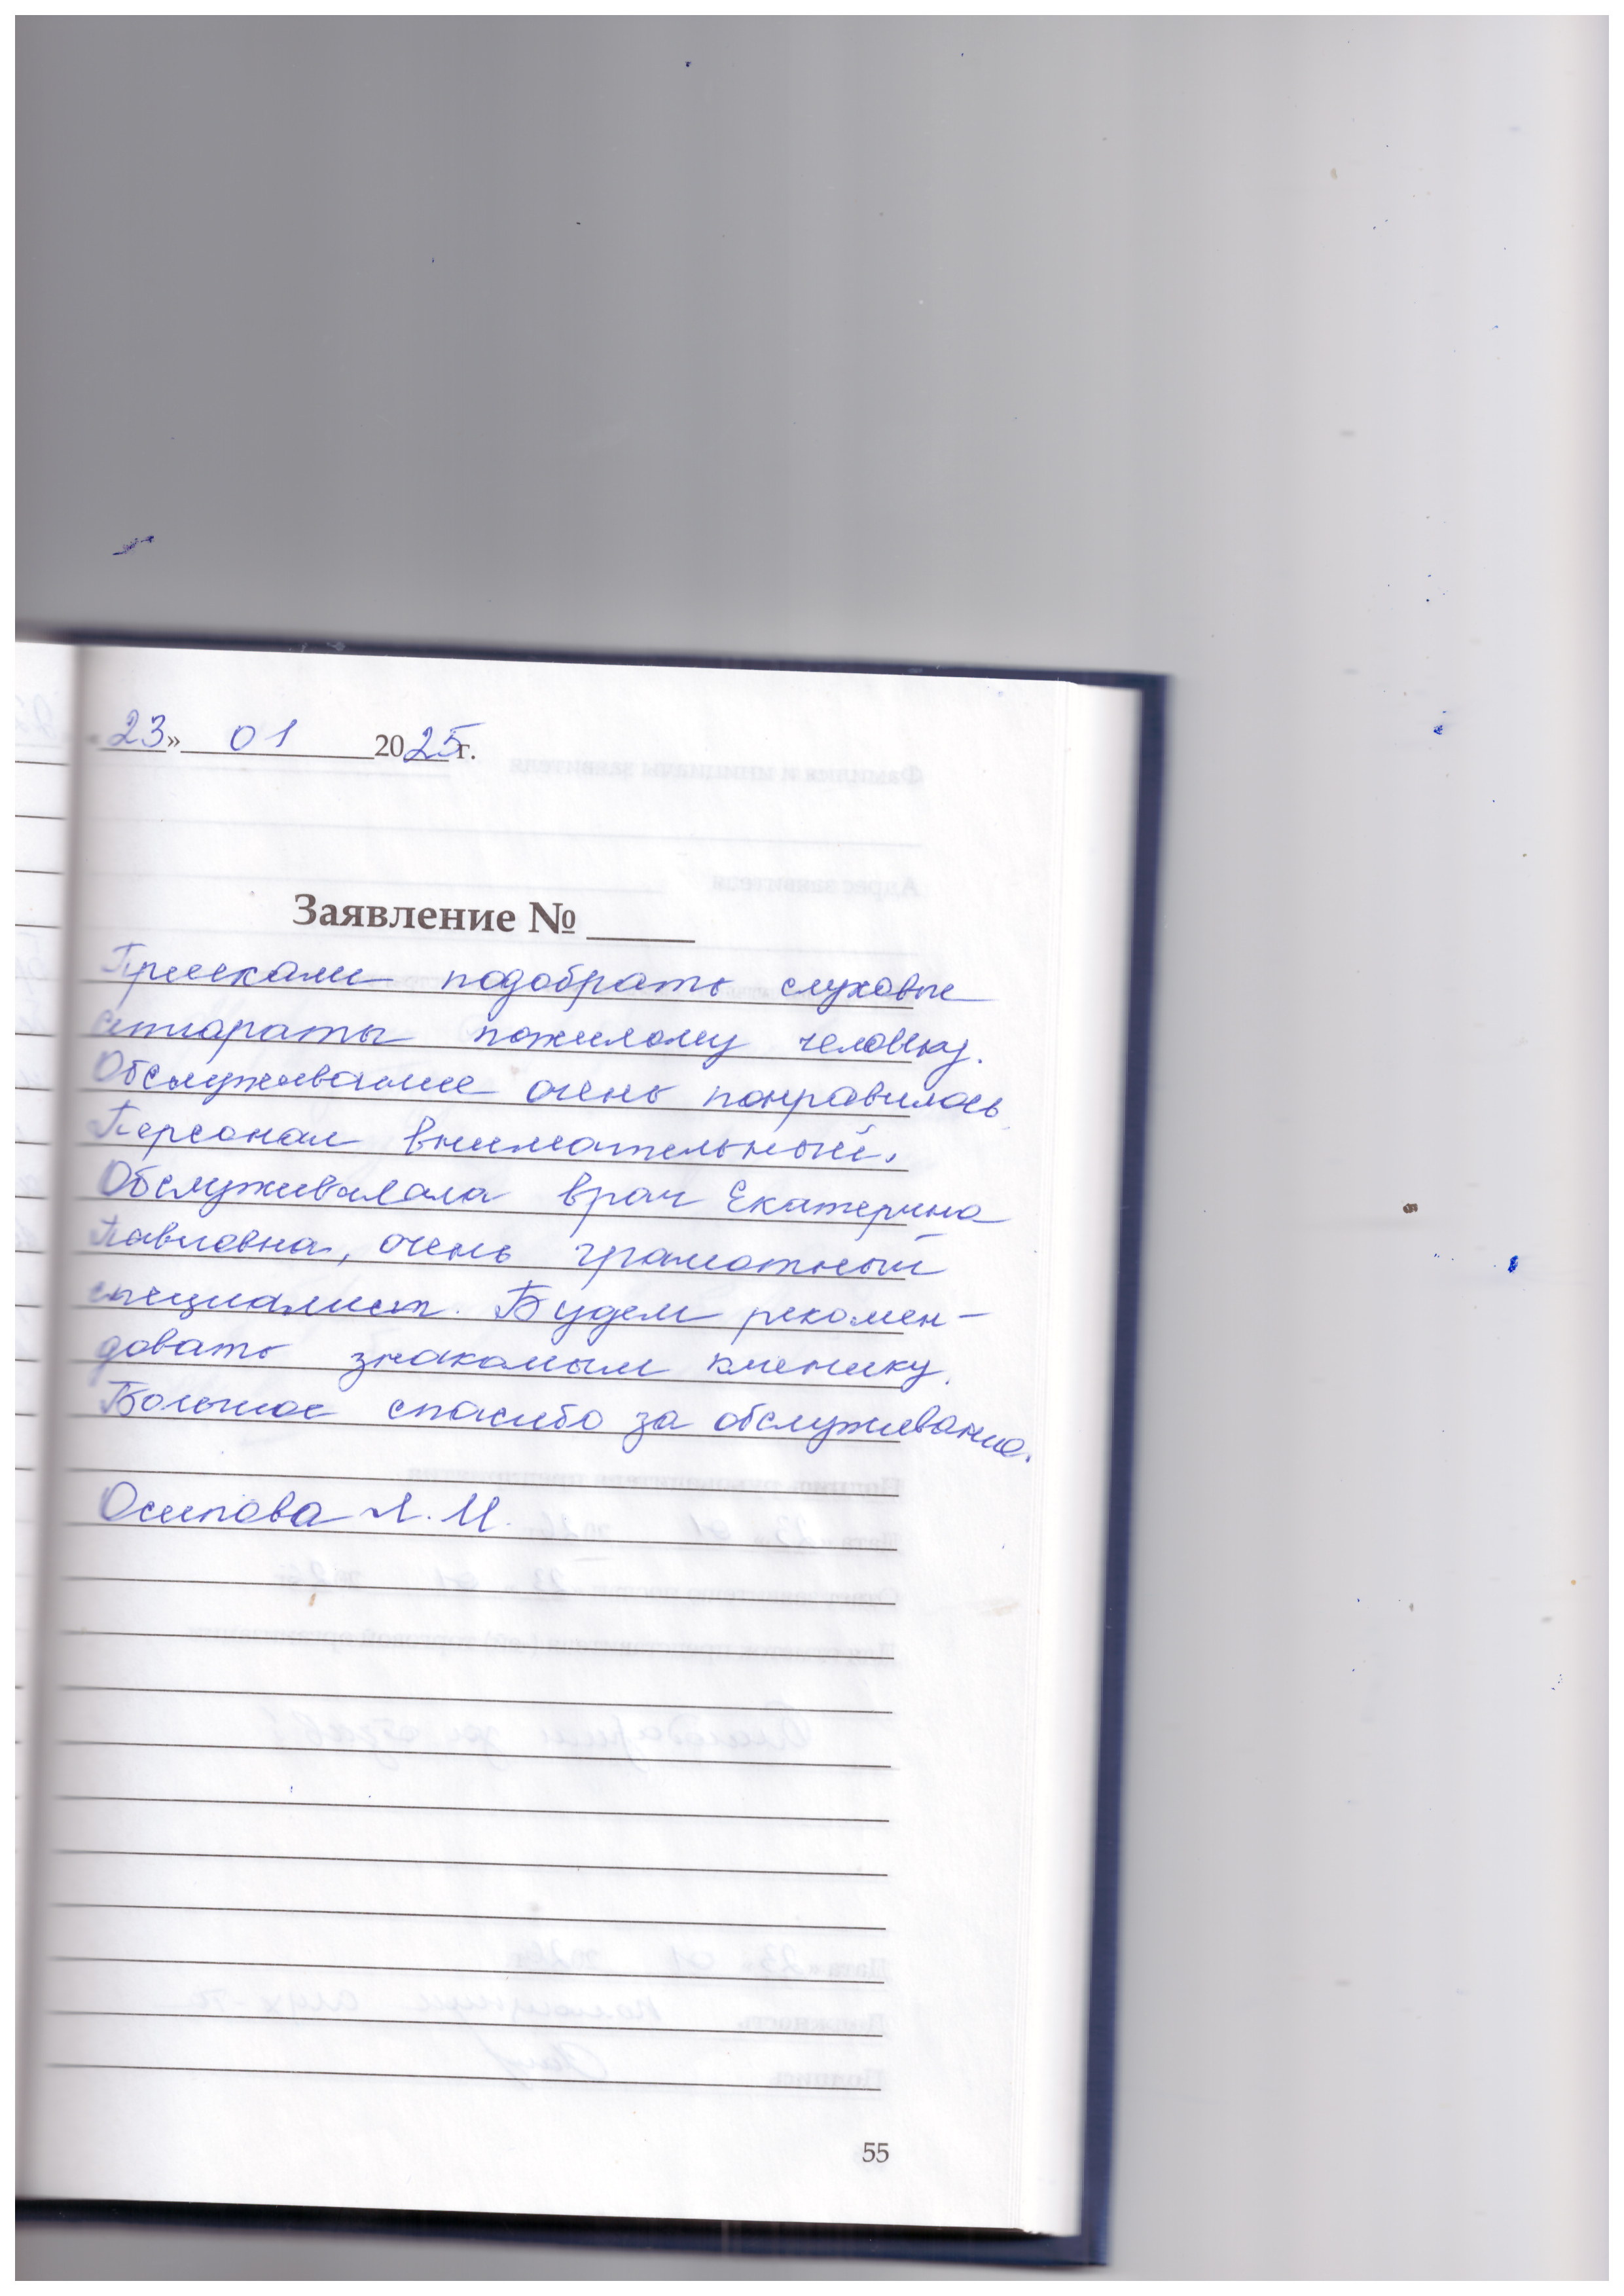 «23» 01 2025 г.
Заявление № 
Приехали подобрать слуховые
аппараты пожилому человеку.
Обслуживание очень понравилось.
Персонал внимательный.
Обслуживала врач Екатерина
Павловна, очень грамотный
специалист. Будем рекомен-
довать знакомым клинику.
Большое спасибо за обслуживание.
Осипова Л. И.
55